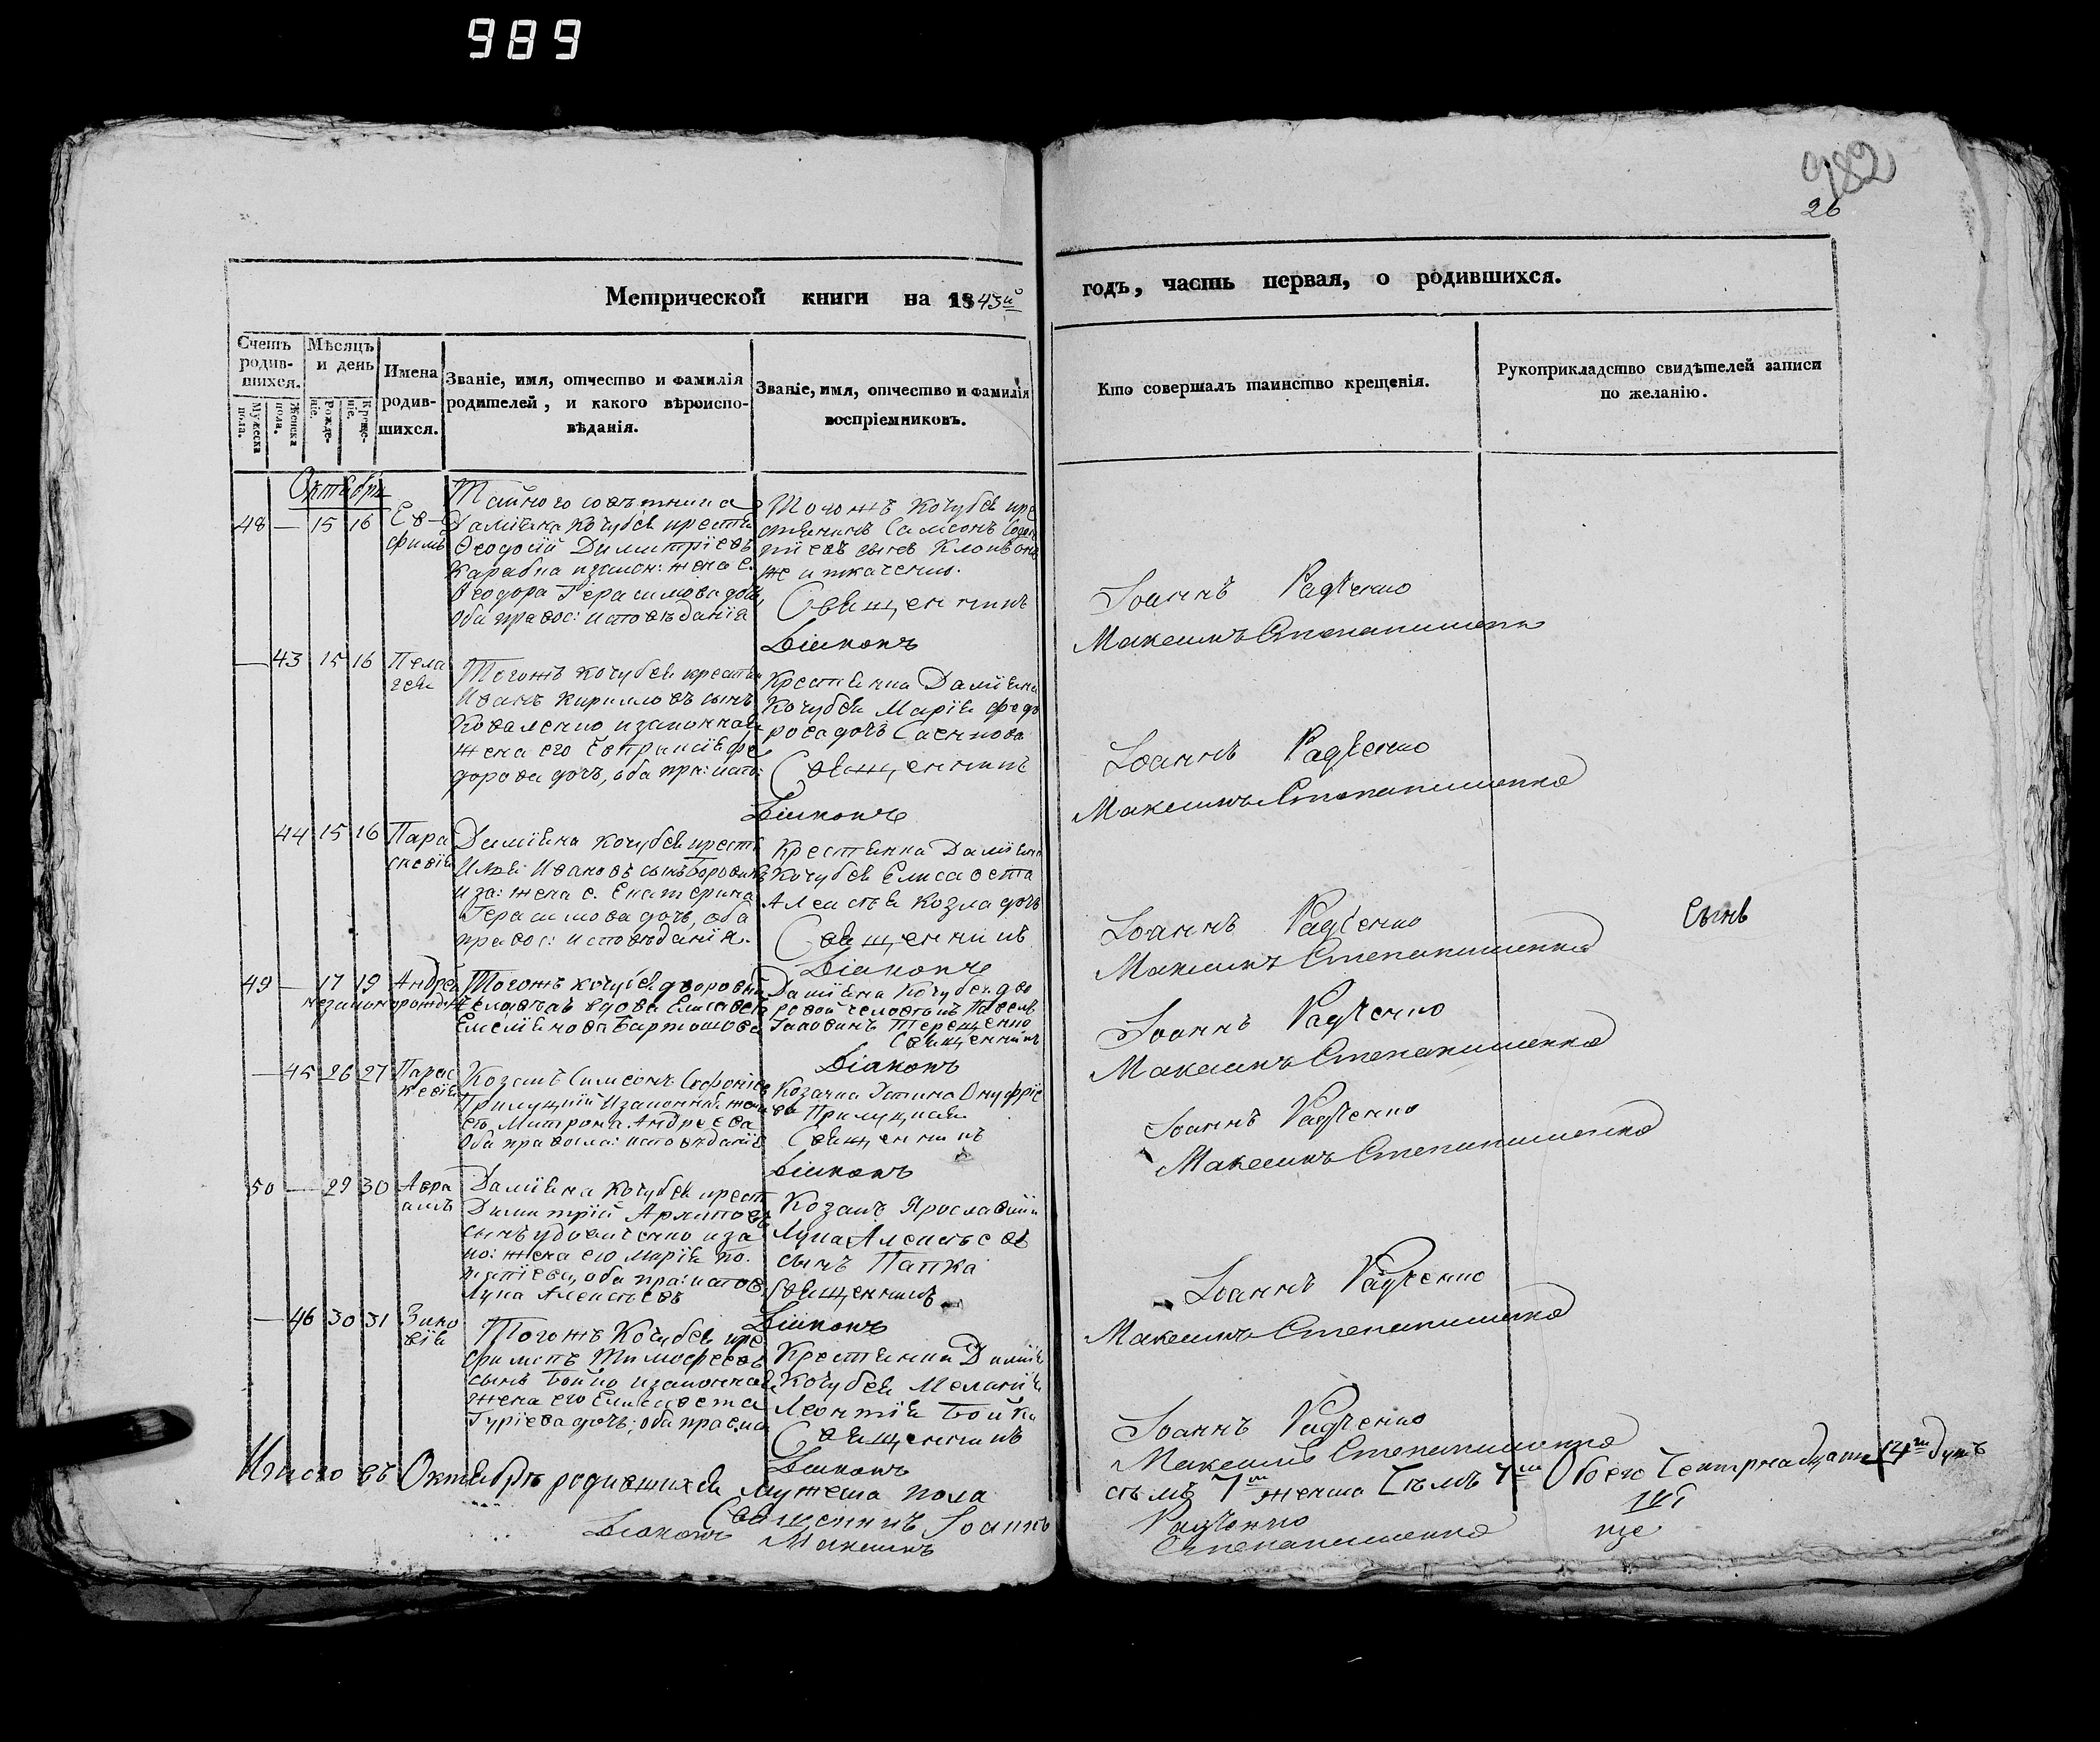 989
982
26
Метрической книги на 1843й
годъ, часть первая, о родившихся.
Счетъ родив-шихся.
Мужеска пола.
Женска пола.
Мѣсяцъ и день
Рожде-нiе.
Креще-нiе.
Имена родив-шихся.
Званiе, имя, отчество и фамилiя
родителей, и какого вѣроиспо-
вѣданiя.
Званiе, имя, отчество и фамилiя
воспрiемниковъ.
Кто совершалъ таинство крещенiя.
Рукоприкладство свидѣтелей записи
по желанiю.
Октября
48 — 15 16 Ев-
фимъ
Тайного совѣтника
Дамiяна Кочубея крестя
Ѳеодосiй Димитрiевъ
Карабка изакон: жена е.
Ѳеодора Герасимова доч,
оба правос: исповѣданiя
Тогожъ Кочубея кре
стянинъ Самсонъ
сынъ
Священникъ
Дiаконъ
Iоаннъ Радченко
Максимъ Степанишенк
— 43 15 16 Пела
гея
Тогожъ Кочубея крестя
Иванъ Кирилловъ сынъ
Коваленко изаконная
жена его Евпраксiя Фе
дорова дочь, оба пра: испо:
Крестянка Дамiяна
Кочубея Марiя Федо
рова дочь
Священникъ
Дiаконъ
Iоаннъ Радченко
Максимъ Степанишенко
44 15 16 Пара
скевiя
Дамiяна Кочубея крестя
Илья Ивановъ сынъ
и за: жена е. Екатерина
Герасимова дочь, оба
правос: исповѣданiя.
Крестянка Дамiяна
Кочубея Елисавета
Алексѣя Козла дочь
Священникъ
Дiаконъ
Iоаннъ Радченко
Максимъ Степанишенко
Сынъ
49 — 17 19 Андрей
незаконорожден
Тогожъ Кочубея дворовый
вдова Елисавета
Емелiянова
Дамiяна Кочубея дво
ровой человекъ Павелъ
Терещенко
Священникъ
Дiаконъ
Iоаннъ Радченко
Максимъ Степанишенко
— 45 26 27 Парас
кевiя
Козакъ Самсонъ Софонiев
Прилуцкiй изаконная жена
его Матрона Андреева
оба правосла: исповѣданiя
Козачка Устина Онуфрiе
ва Прилуцкая
Священникъ
Дiаконъ
Iоаннъ Радченко
Максимъ Степанишенко
50 — 29 30 Авра
амъ
Дамiяна Кочубея крест
Димитрiй Архиповъ
сынъ Удовиченко иза
ко: жена его Марiя По-
оба пра: испов,
Лука Алексѣевъ
Козакъ Ярославскiй
Лука Алексѣевъ
сынъ Папка
Священникъ
Дiаконъ
Iоаннъ Радченко
Максимъ Степанишенко
— 46 30 31 Зино
вiя
Тогожъ Кочубея кре
Тимофеевъ
сынъ Бойко изаконная
жена его Елисавета
Гурiева дочь; оба
Крестянка Дамiя
Кочубея Меланiя
Леонтiя Бойка
Священникъ
Дiаконъ
Iоаннъ Радченко
Максимъ Степанишенко
Итого въ Октябрѣ родившихся мужеска пола
семь 7м женска Семъ 7м Обоего Четирнадцать 14м душъ
Священникъ Iоаннъ
Радченко
Дiаконъ Максимъ
Степанишенко